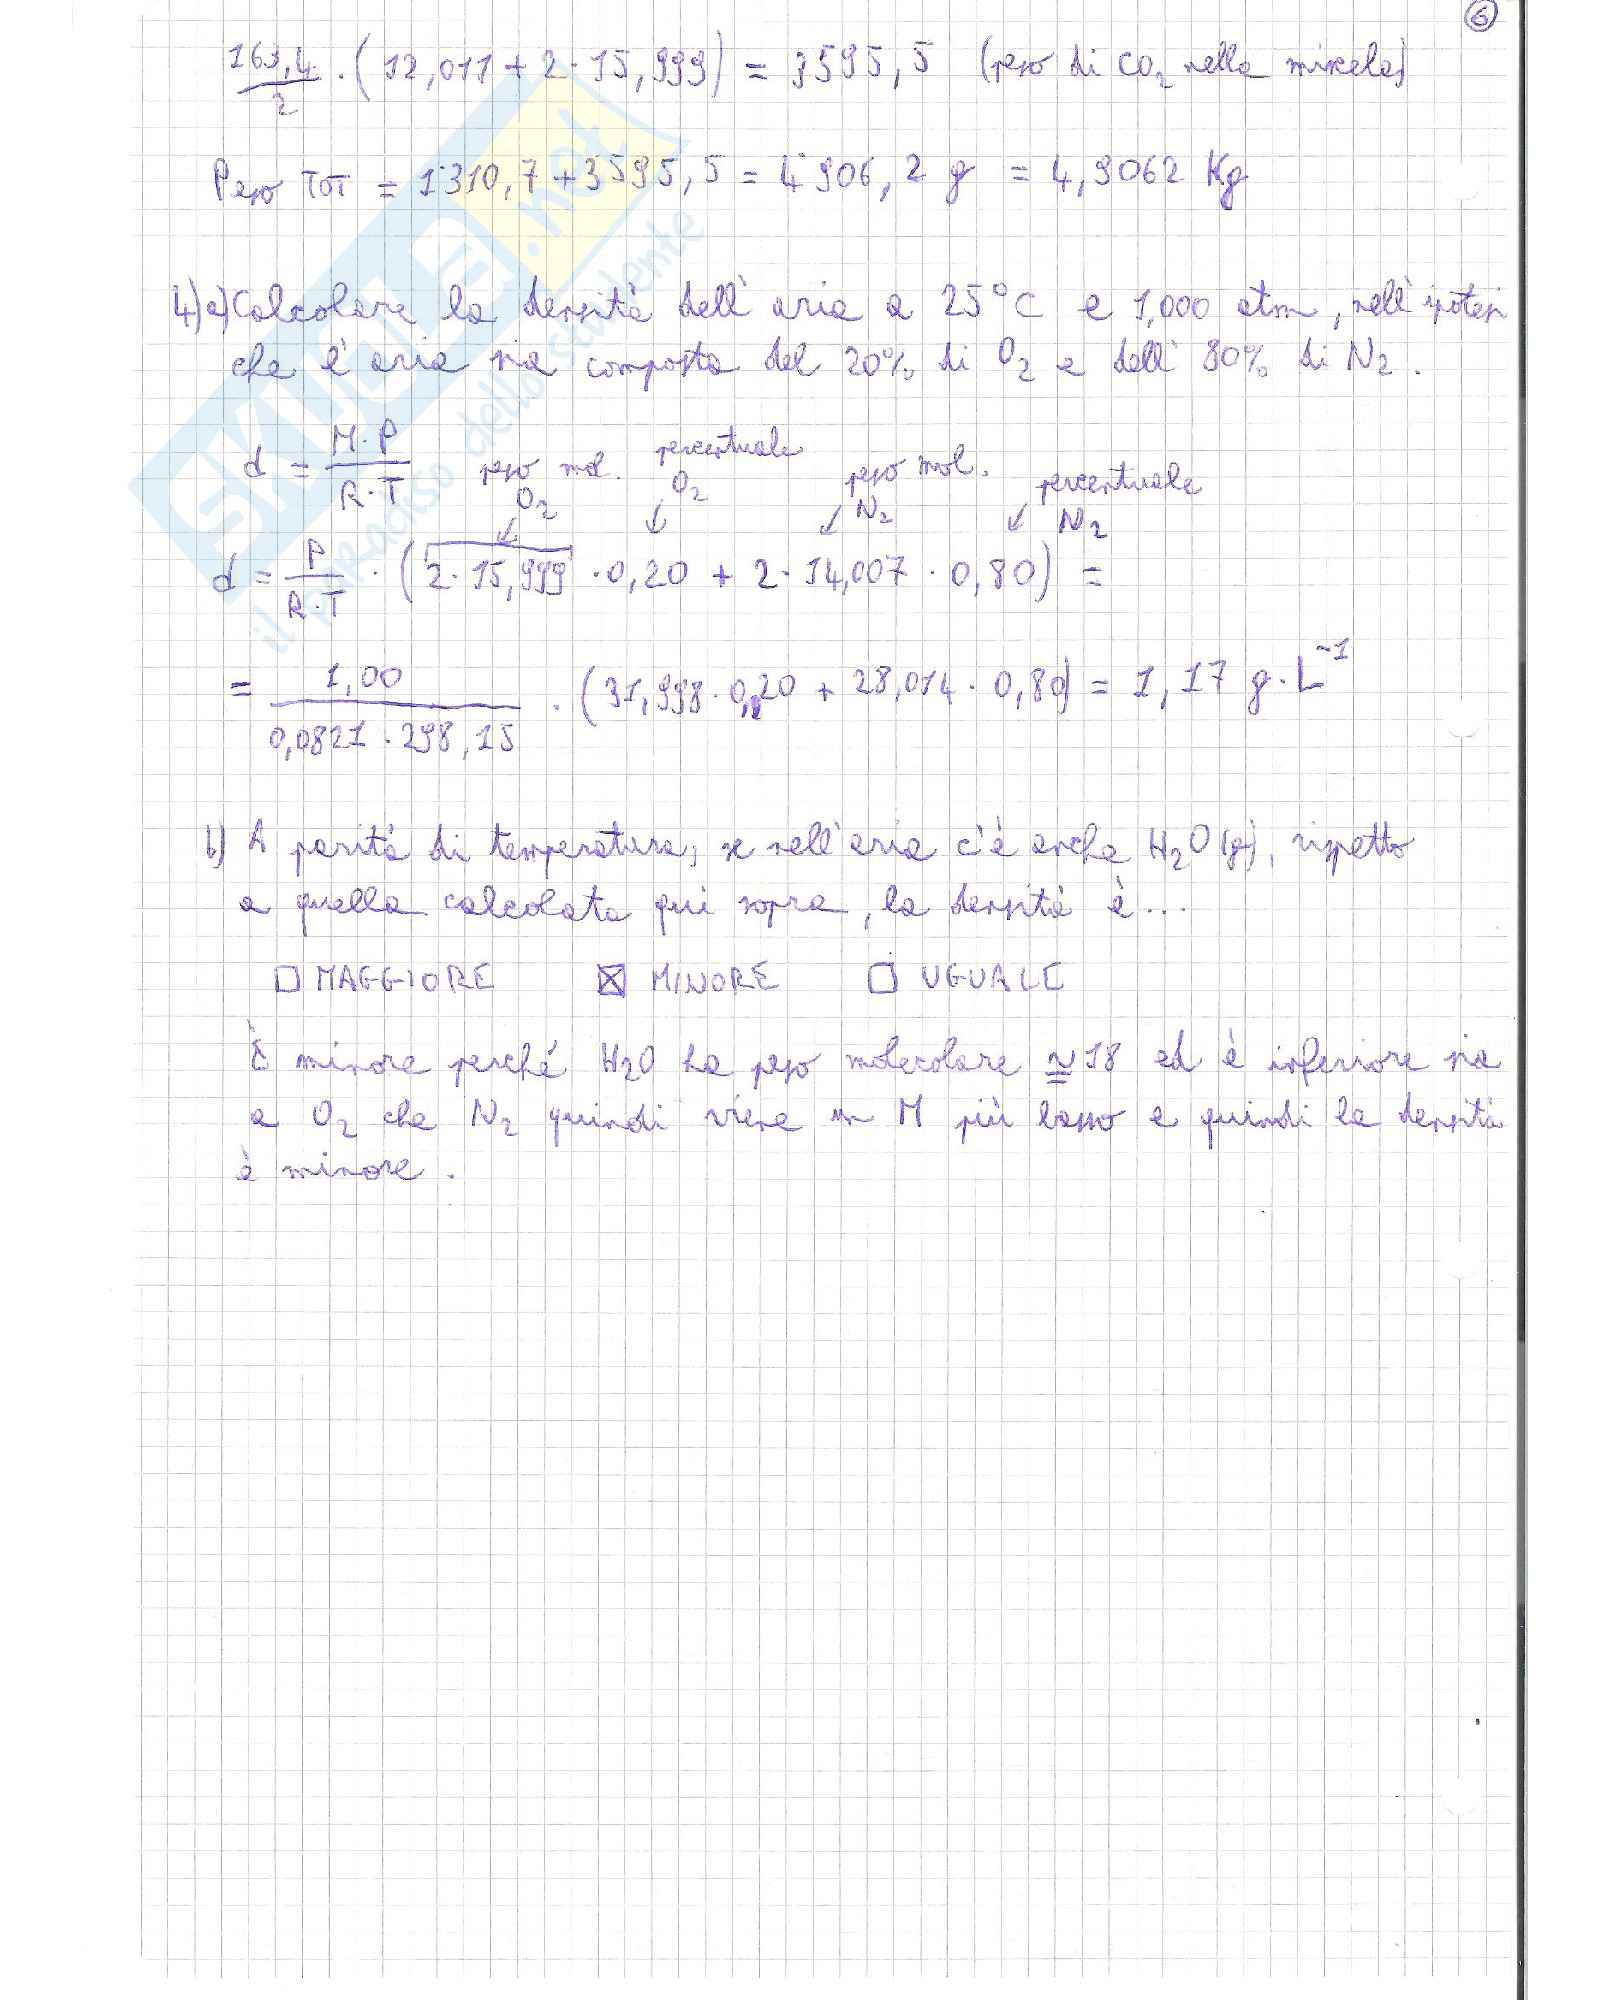 6
163,4/2 · (12,011 + 2·15,999) = 3595,5 (peso di CO2 nella miscela)
Peso TOT = 1310,7 + 3595,5 = 4906,2 g = 4,9062 Kg
4) a) Calcolare la densità dell'aria a 25°C e 1,000 atm, nell'ipotesi
che l'aria sia composta del 20% di O2 e dell'80% di N2.
d = M·P / R·T
peso mol. O2
percentuale O2
peso mol. N2
percentuale N2
d = P / R·T · (2·15,999 · 0,20 + 2·14,007 · 0,80) =
= 1,00 / 0,0821 · 298,15 · (31,998 · 0,20 + 28,014 · 0,80) = 1,17 g·L⁻¹
b) A parità di temperatura, se nell'aria c'è anche H2O (g), rispetto
a quella calcolata qui sopra, la densità è...
☐ MAGGIORE ☒ MINORE ☐ UGUALE
È minore perché H2O ha peso molecolare ≅ 18 ed è inferiore sia
a O2 che N2 quindi viene un M più basso e quindi la densità
è minore.
SKUOLA.net
il paradiso dello studente